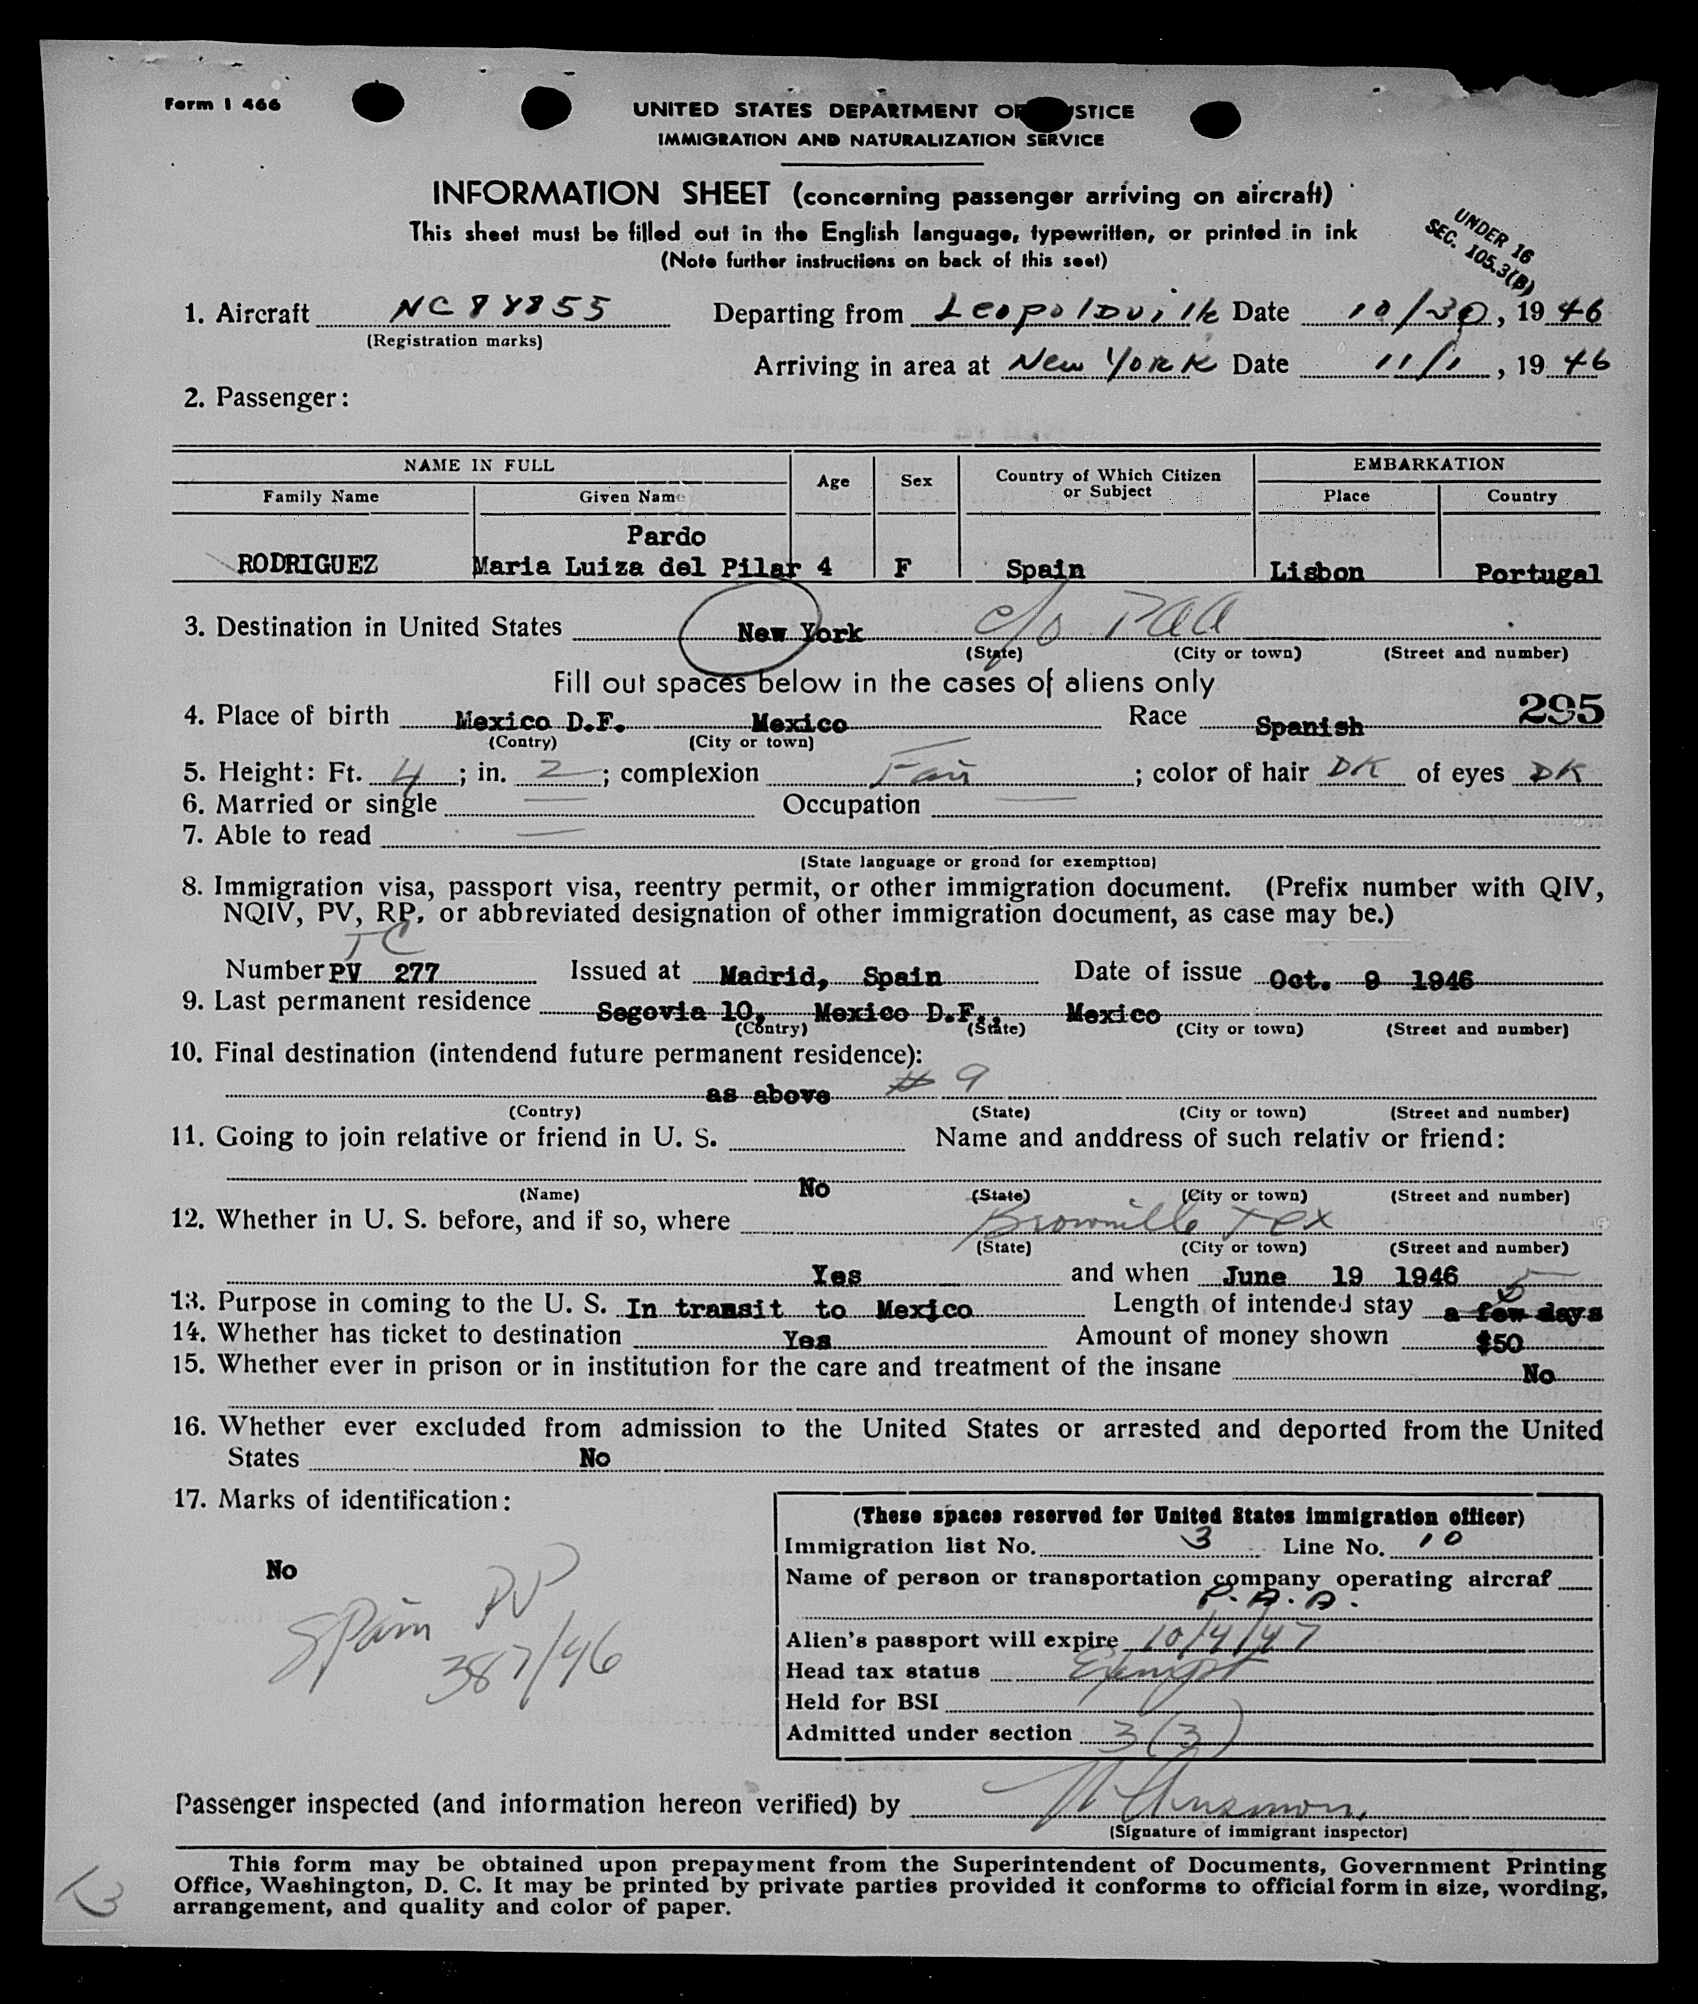 Form I 466
UNITED STATES DEPARTMENT OF STICE
IMMIGRATION AND NATURALIZATION SERVICE
INFORMATION SHEET (concerning passenger arriving on aircraft)
This sheet must be filled out in the English language, typewritten, or printed in ink
(Note further instructions on back of this seet)
UNDER 16
SEC. 105.3(B)
1. Aircraft NC88855 Departing from Leopoldville Date 10/30, 1946
(Registration marks)
Arriving in area at New York Date 11/1, 1946
2. Passenger:
NAME IN FULL Age Sex Country of Which Citizen or Subject EMBARKATION
Family Name Given Name Place Country
Pardo
RODRIGUEZ Maria Luiza del Pilar 4 F Spain Lisbon Portugal
3. Destination in United States New York c/o PAA
(State) (City or town) (Street and number)
Fill out spaces below in the cases of aliens only
295
4. Place of birth Mexico D.F. Mexico Race Spanish
(Contry) (City or town)
5. Height: Ft. 4; in. 2; complexion Fair; color of hair DK of eyes DK
6. Married or single — Occupation —
7. Able to read —
(State language or grond for exemption)
8. Immigration visa, passport visa, reentry permit, or other immigration document. (Prefix number with QIV,
NQIV, PV, RP, or abbreviated designation of other immigration document, as case may be.)
TC
Number PV 277 Issued at Madrid, Spain Date of issue Oct. 9 1946
9. Last permanent residence Segovia 10, Mexico D.F., Mexico
(Contry) (State) (City or town) (Street and number)
10. Final destination (intendend future permanent residence):
as above # 9
(Contry) (State) (City or town) (Street and number)
11. Going to join relative or friend in U. S. Name and anddress of such relativ or friend:
No
(Name) (State) (City or town) (Street and number)
12. Whether in U. S. before, and if so, where Brownille Tex
(State) (City or town) (Street and number)
Yes and when June 19 1946 5
13. Purpose in coming to the U. S. In transit to Mexico Length of intended stay a few days
14. Whether has ticket to destination Yes Amount of money shown $50
15. Whether ever in prison or in institution for the care and treatment of the insane No
16. Whether ever excluded from admission to the United States or arrested and deported from the United
States No
17. Marks of identification:
No
Spain PP
387/46
(These spaces reserved for United States immigration officer)
Immigration list No. 3 Line No. 10
Name of person or transportation company operating aircraf
P.A.A.
Alien's passport will expire 10/4/47
Head tax status Exempt
Held for BSI
Admitted under section 3(3)
Passenger inspected (and information hereon verified) by
(Signature of immigrant inspector)
This form may be obtained upon prepayment from the Superintendent of Documents, Government Printing
Office, Washington, D. C. It may be printed by private parties provided it conforms to official form in size, wording,
arrangement, and quality and color of paper.